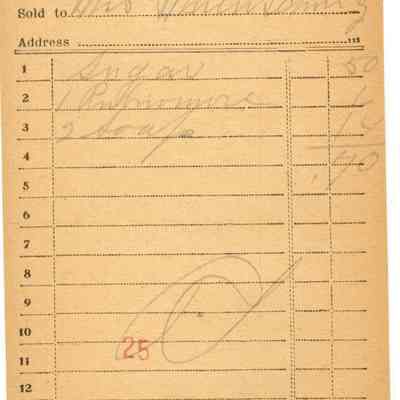 Sold to Mrs
Address
1 Sugar 50
2 1
3 2 soaps 14
4 .70
5
6
7
8
9
10
25
11
12